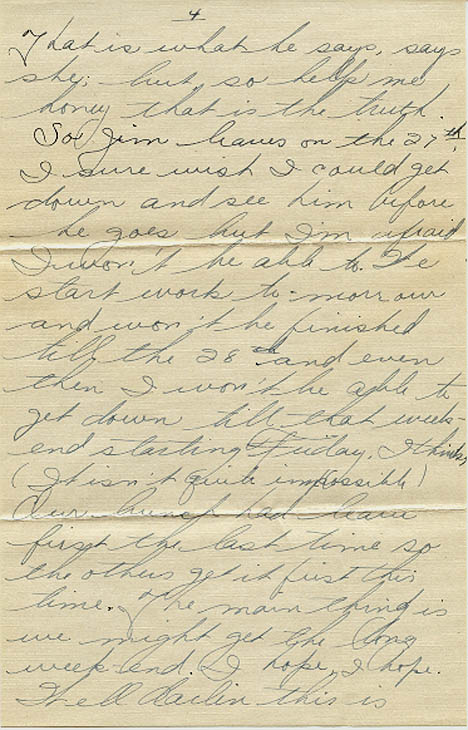 4
That is what he says, says
she; but so help me
honey that is the truth.
So Jim leaves on the 27th.
I sure wish I could get
down and see him before
he goes but I'm afraid
I won't be able to. We
start work to-morrow
and won't be finished
till the 28th and even
then I won't be able to
get down till that week
end starting Friday, I think
(It isn't quite impossible)
Our bunch had leave
first the last time so
the others get it first this
time. The main thing is
we might get the long
week-end. I hope, I hope.
Well darlin this is